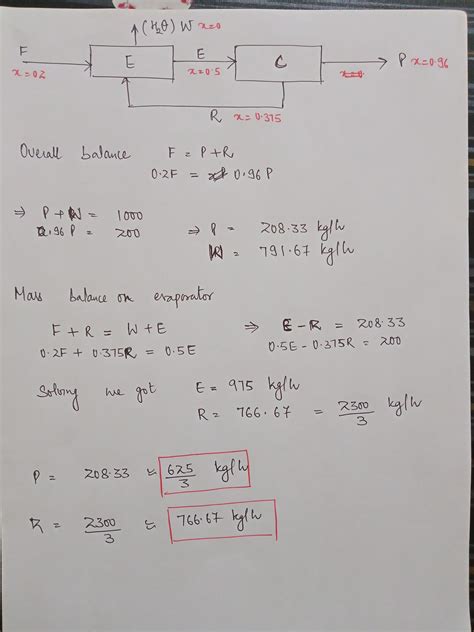 (H₂O) W x=0
F E E C P x=0.96
x=0.2 x=0.5 x=0
R x=0.375
Overall balance F = P+R
0.2F = 0.96P
⇒ P + W = 1000 ⇒ P = 208.33 kg/h
0.96 P = 200 W = 791.67 kg/h
Mass balance on evaporator
F + R = W + E ⇒ E - R = 208.33
0.2F + 0.375R = 0.5E 0.5E - 0.375R = 200
Solving we got E = 975 kg/h
R = 766.67 = 2300/3 kg/h
P = 208.33 ≈ 625/3 kg/h
R = 2300/3 ≈ 766.67 kg/h